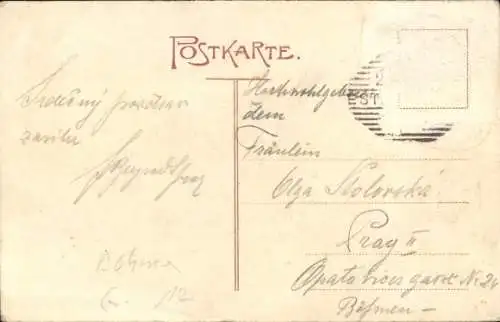 POSTKARTE.
Srdečný pozdrav
zasílá
Hochwohlgebor
dem
Fräulein
Olga Stolovská
Prag II
Opatovicesgasse No 24
Böhmen
ST
12